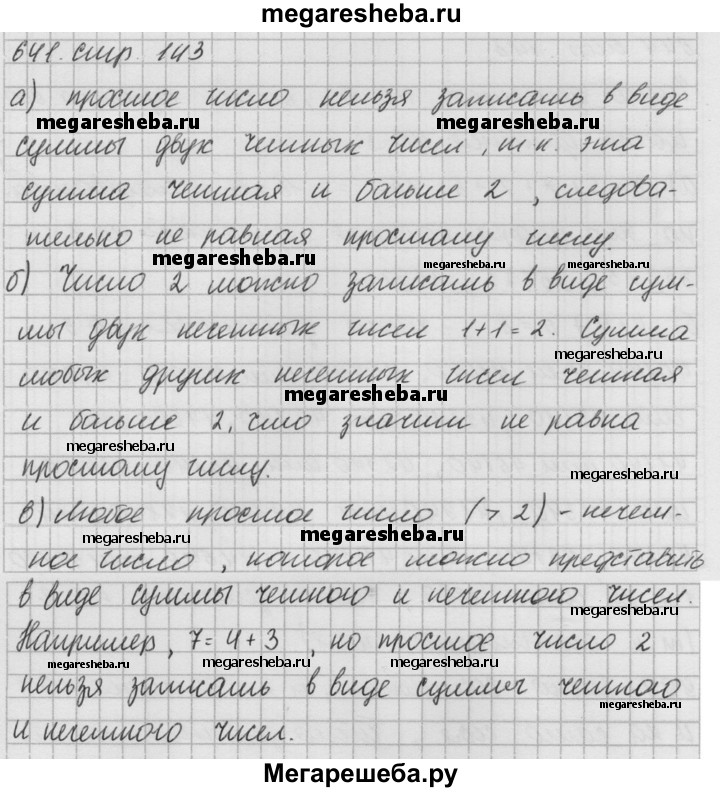 megaresheba.ru
641. стр. 143
а) простое число нельзя записать в виде
megaresheba.ru megaresheba.ru
суммы двух четных чисел, т.к. эта
сумма четная и больше 2, следова-
тельно не равная простому числу.
megaresheba.ru megaresheba.ru megaresheba.ru
б) Число 2 можно записать в виде сум-
мы двух нечетных чисел 1+1=2. Сумма
megaresheba.ru
любых других нечетных чисел четная
megaresheba.ru
и больше 2, что значит не равна
megaresheba.ru
простому числу.
megaresheba.ru
в) Любое простое число (> 2) - нечет-
megaresheba.ru megaresheba.ru
ное число, которое можно представить
в виде суммы четного и нечетного чисел.
megaresheba.ru
Например, 7=4+3, но простое число 2
megaresheba.ru megaresheba.ru
нельзя записать в виде суммы четного
megaresheba.ru
и нечетного чисел.
Мегарешеба.ру